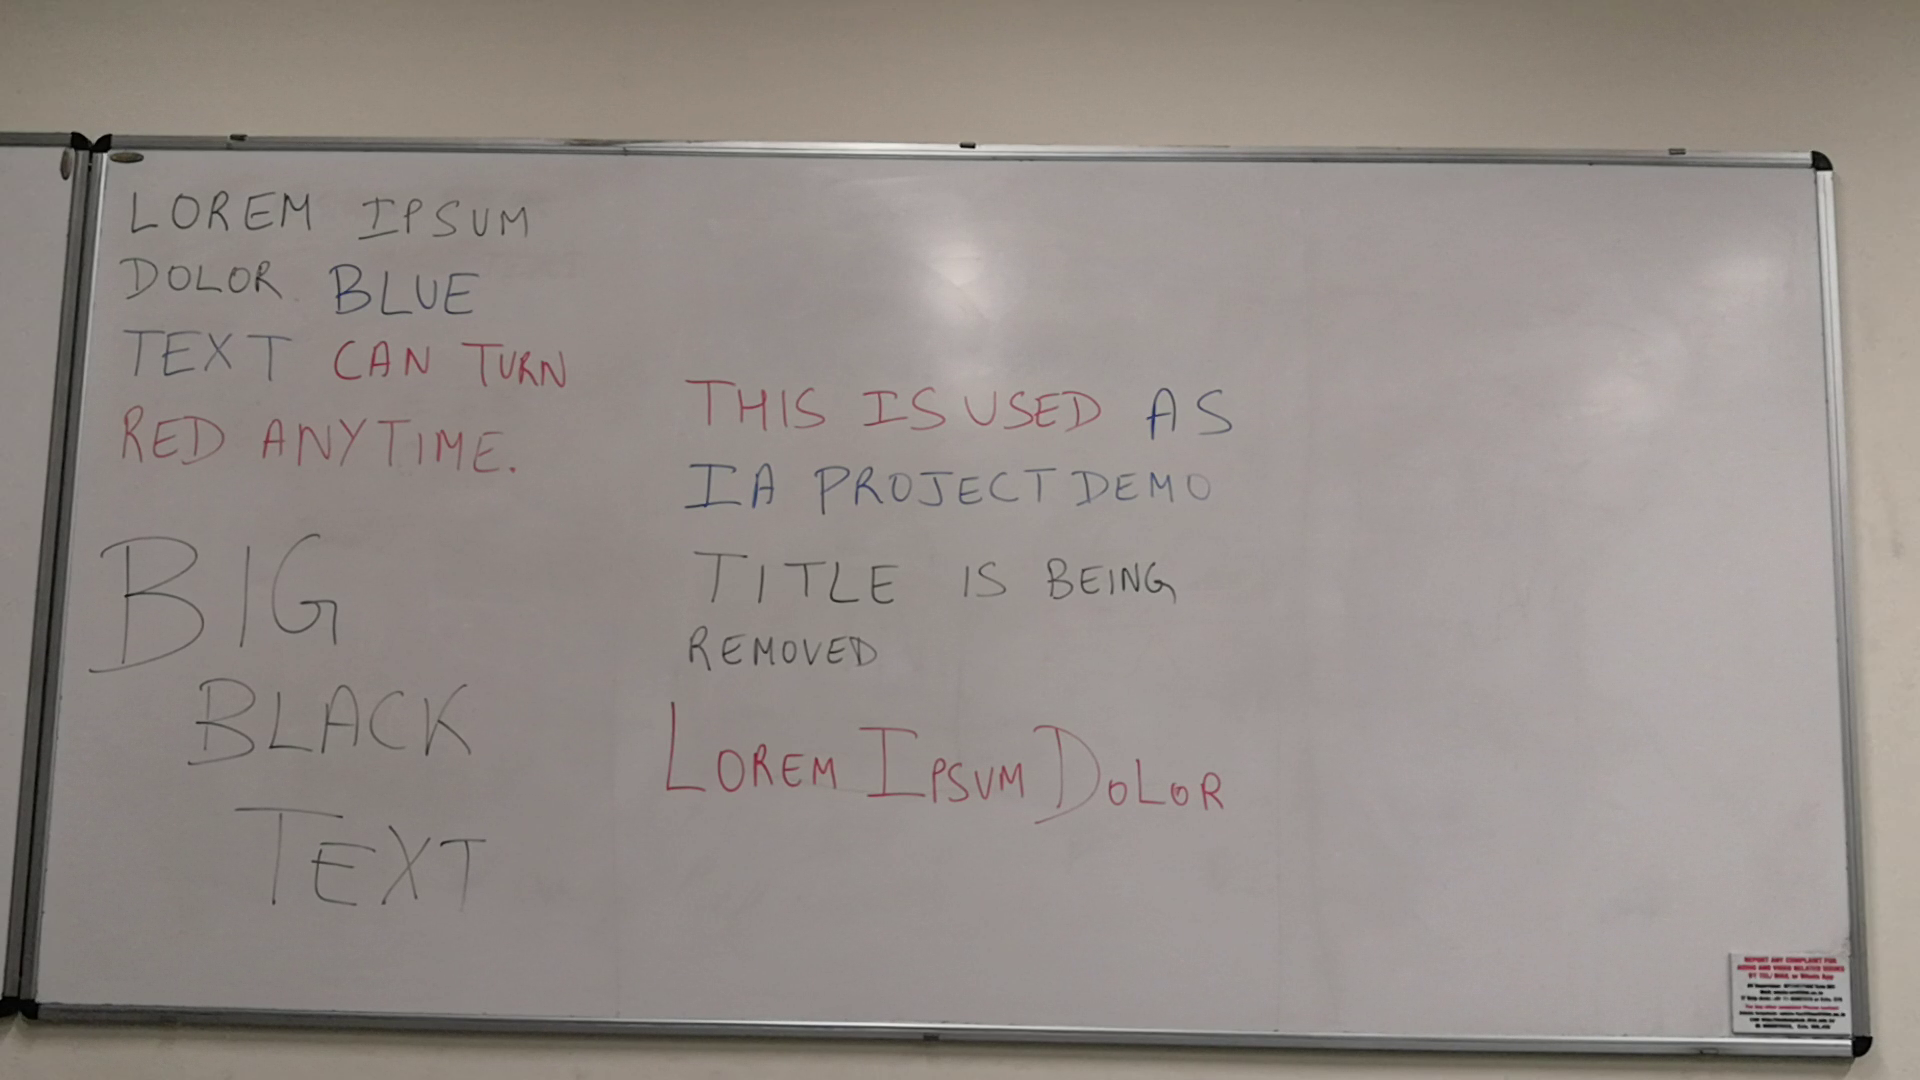 LOREM IPSUM
DOLOR BLUE
TEXT CAN TURN
RED ANYTIME.
BIG
BLACK
TEXT
THIS IS USED AS
IA PROJECT DEMO
TITLE IS BEING
REMOVED
LOREM IPSUM DOLOR
REPORT ANY COMPLAINT FOR
AUDIO AND VIDEO RELATED ISSUES